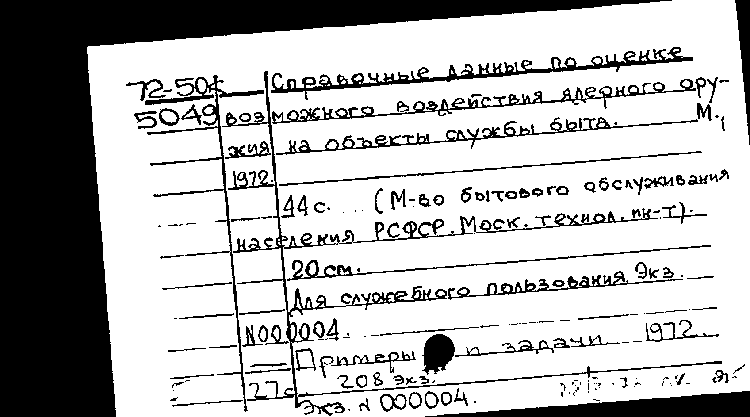 72-50
5049
Справочные данные по оценке
возможного воздействия ядерного ору-
жия на объекты службы быта. М.,
1972.
44 с. (М-во бытового обслуживания
населения РСФСР. Моск. технол. ин-т).
20 см.
Для служебного пользования. Экз.
N000004.
— Примеры и задачи 1972.
27 с 208 экз.
Экз. N 000004.